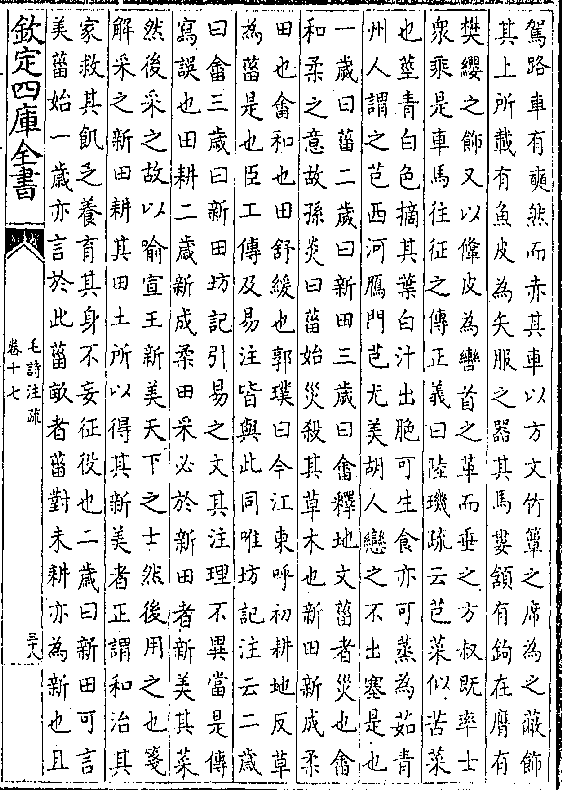 駕路車有奭然而赤其車以方文竹簟之席為之蔽飾
其上所載有魚皮為矢服之器其馬婁頷有鉤在膺有
樊纓之飾又以鞗皮為轡首之革而垂之方叔既率士
衆乘是車馬往征之傳正義曰陸璣疏云芑菜似苦菜
也莖青白色摘其葉白汁出脆可生食亦可蒸為茹青
州人謂之芑西河鴈門芑尤美胡人戀之不出塞是也
一歲曰菑二歲曰新田三歲曰畬釋地文菑者災也畬
和柔之意故孫炎曰菑始災殺其草木也新田新成柔
田也畬和也田舒緩也郭璞曰今江東呼初耕地反草
為菑是也臣工傳及易注皆與此同唯坊記注云二歲
曰畬三歲曰新田坊記引易之文其注理不異當是傳
寫誤也田耕二歲新成柔田采必於新田者新美其菜
然後采之故以喻宣王新美天下之士然後用之也箋
解采之新田耕其田土所以得其新美者正謂和治其
家救其飢乏養育其身不妄征役也二歲曰新田可言
美菑始一歲亦言於此菑畝者菑對未耕亦為新也且
欽定四庫全書
毛詩注疏
卷十七
三八